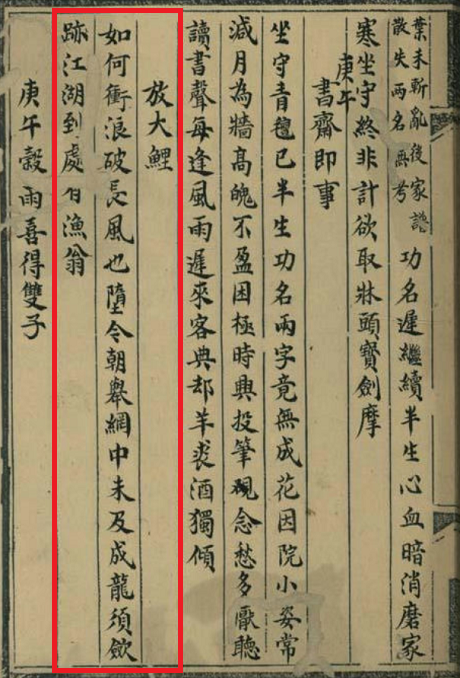 葉未斬亂後家譜
散失兩名無考
功名遲繼續半生心血暗消磨家
寒坐守終非計欲取牀頭寶劍摩
庚午
書齋即事
坐守青氊已半生功名兩字竟無成花因院小姿常
減月為牆高魄不盈困極時與投筆硯念愁多厭聽
讀書聲每逢風雨遲來客典却羊裘酒獨傾
放大鯉
如何衝浪破長風也墮今朝舉網中未及成龍須斂
跡江湖到處有漁翁
庚午穀雨喜得雙子